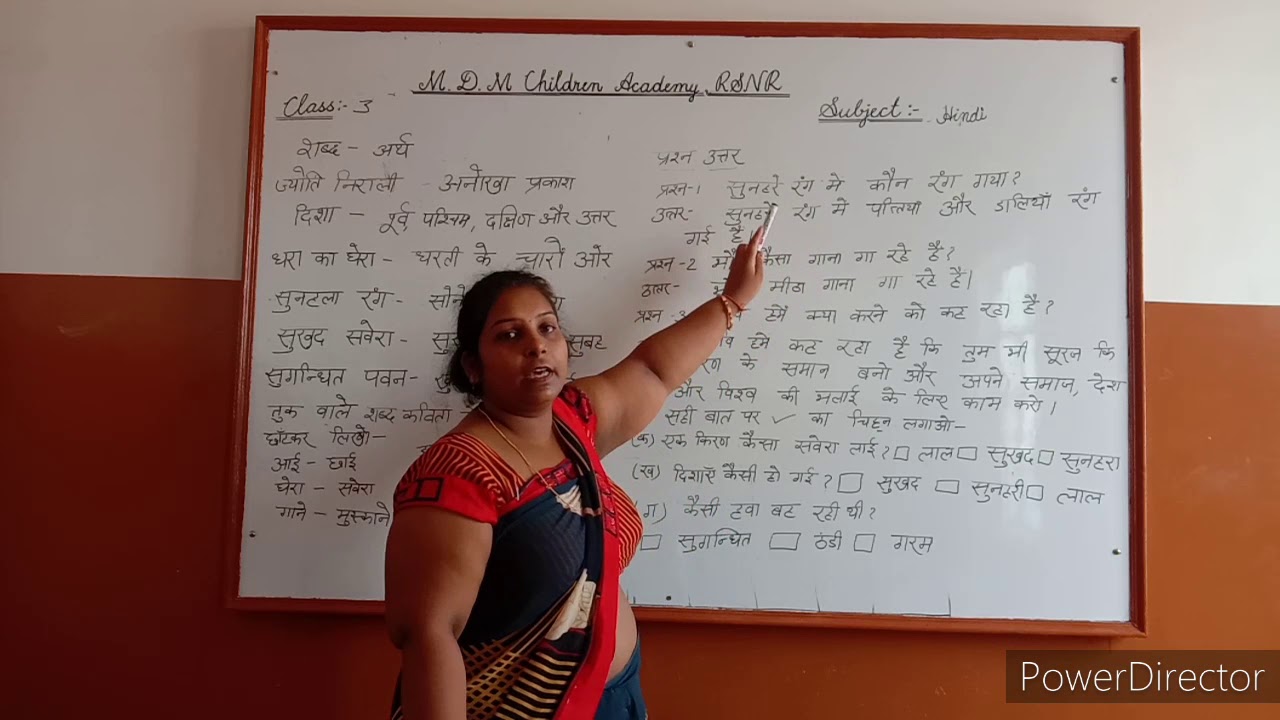 M. D. M Children Academy, RSNR
Class:- 3
Subject:- Hindi
शब्द - अर्थ
ज्योति निराली - अनोखा प्रकाश
दिशा - पूर्व, पश्चिम, दक्षिण और उत्तर
धरा का घेरा - धरती के चारों ओर
सुनहला रंग - सोने
सुखद सवेरा - सुबह
सुगन्धित पवन-
तुक वाले शब्द कविता
छाँटकर लिखो-
आई - छाई
घेरा - सवेरा
गाने - मुस्काने
प्रश्न उत्तर
प्रश्न-1 सुनहरे रंग मे कौन रंग गया?
उत्तर- सुनहरे रंग मे पत्तियाँ और डालियाँ रंग
गई है।
प्रश्न-2 कैसा गाना गा रहे है?
उत्तर- मीठा गाना गा रहे है।
प्रश्न हमें क्या करने को कह रहा है?
हमे कह रहा है कि तुम भी सूरज कि
के समान बनो और अपने समाज, देश
और विश्व की भलाई के लिए काम करो।
सही बात पर ✓ का चिह्न लगाओ-
(क) एक किरण कैसा सवेरा लाई? □ लाल □ सुखद □ सुनहरा
(ख) दिशाएँ कैसी हो गई? □ सुखद □ सुनहरी □ लाल
(ग) कैसी हवा बह रही थी?
□ सुगन्धित □ ठंडी □ गरम
PowerDirector